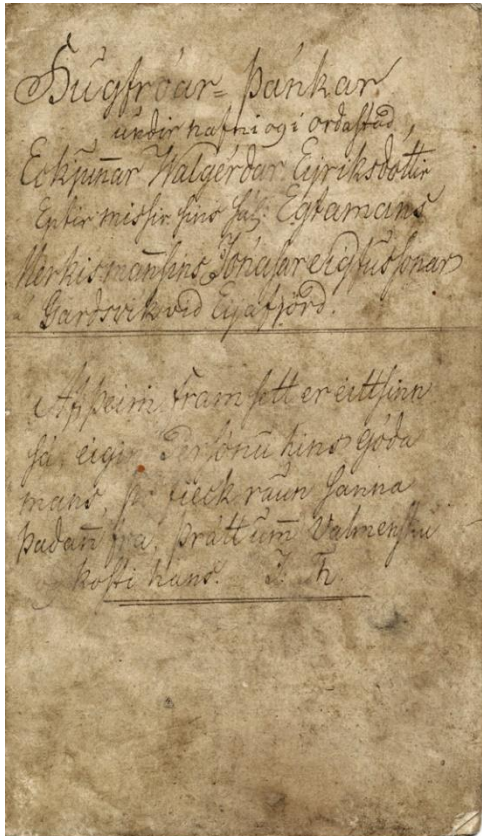 Hùgfróar= þánkar
undir nafni og í orðastað,
Eckjuñar Walgérdar Eyriksdottir
Eptir missir sins Sál: Egtamans
Merkismansins Jónasar Sigfússonar
Garðsvík við Eyafjörð.
Af þeim Fram sett er eitt sinn
sá eigin Persónu hins góda
mans, þó fieck raun sanna
þadañ frá, þrátt um Valmensku
og kosti hans. J. Th.